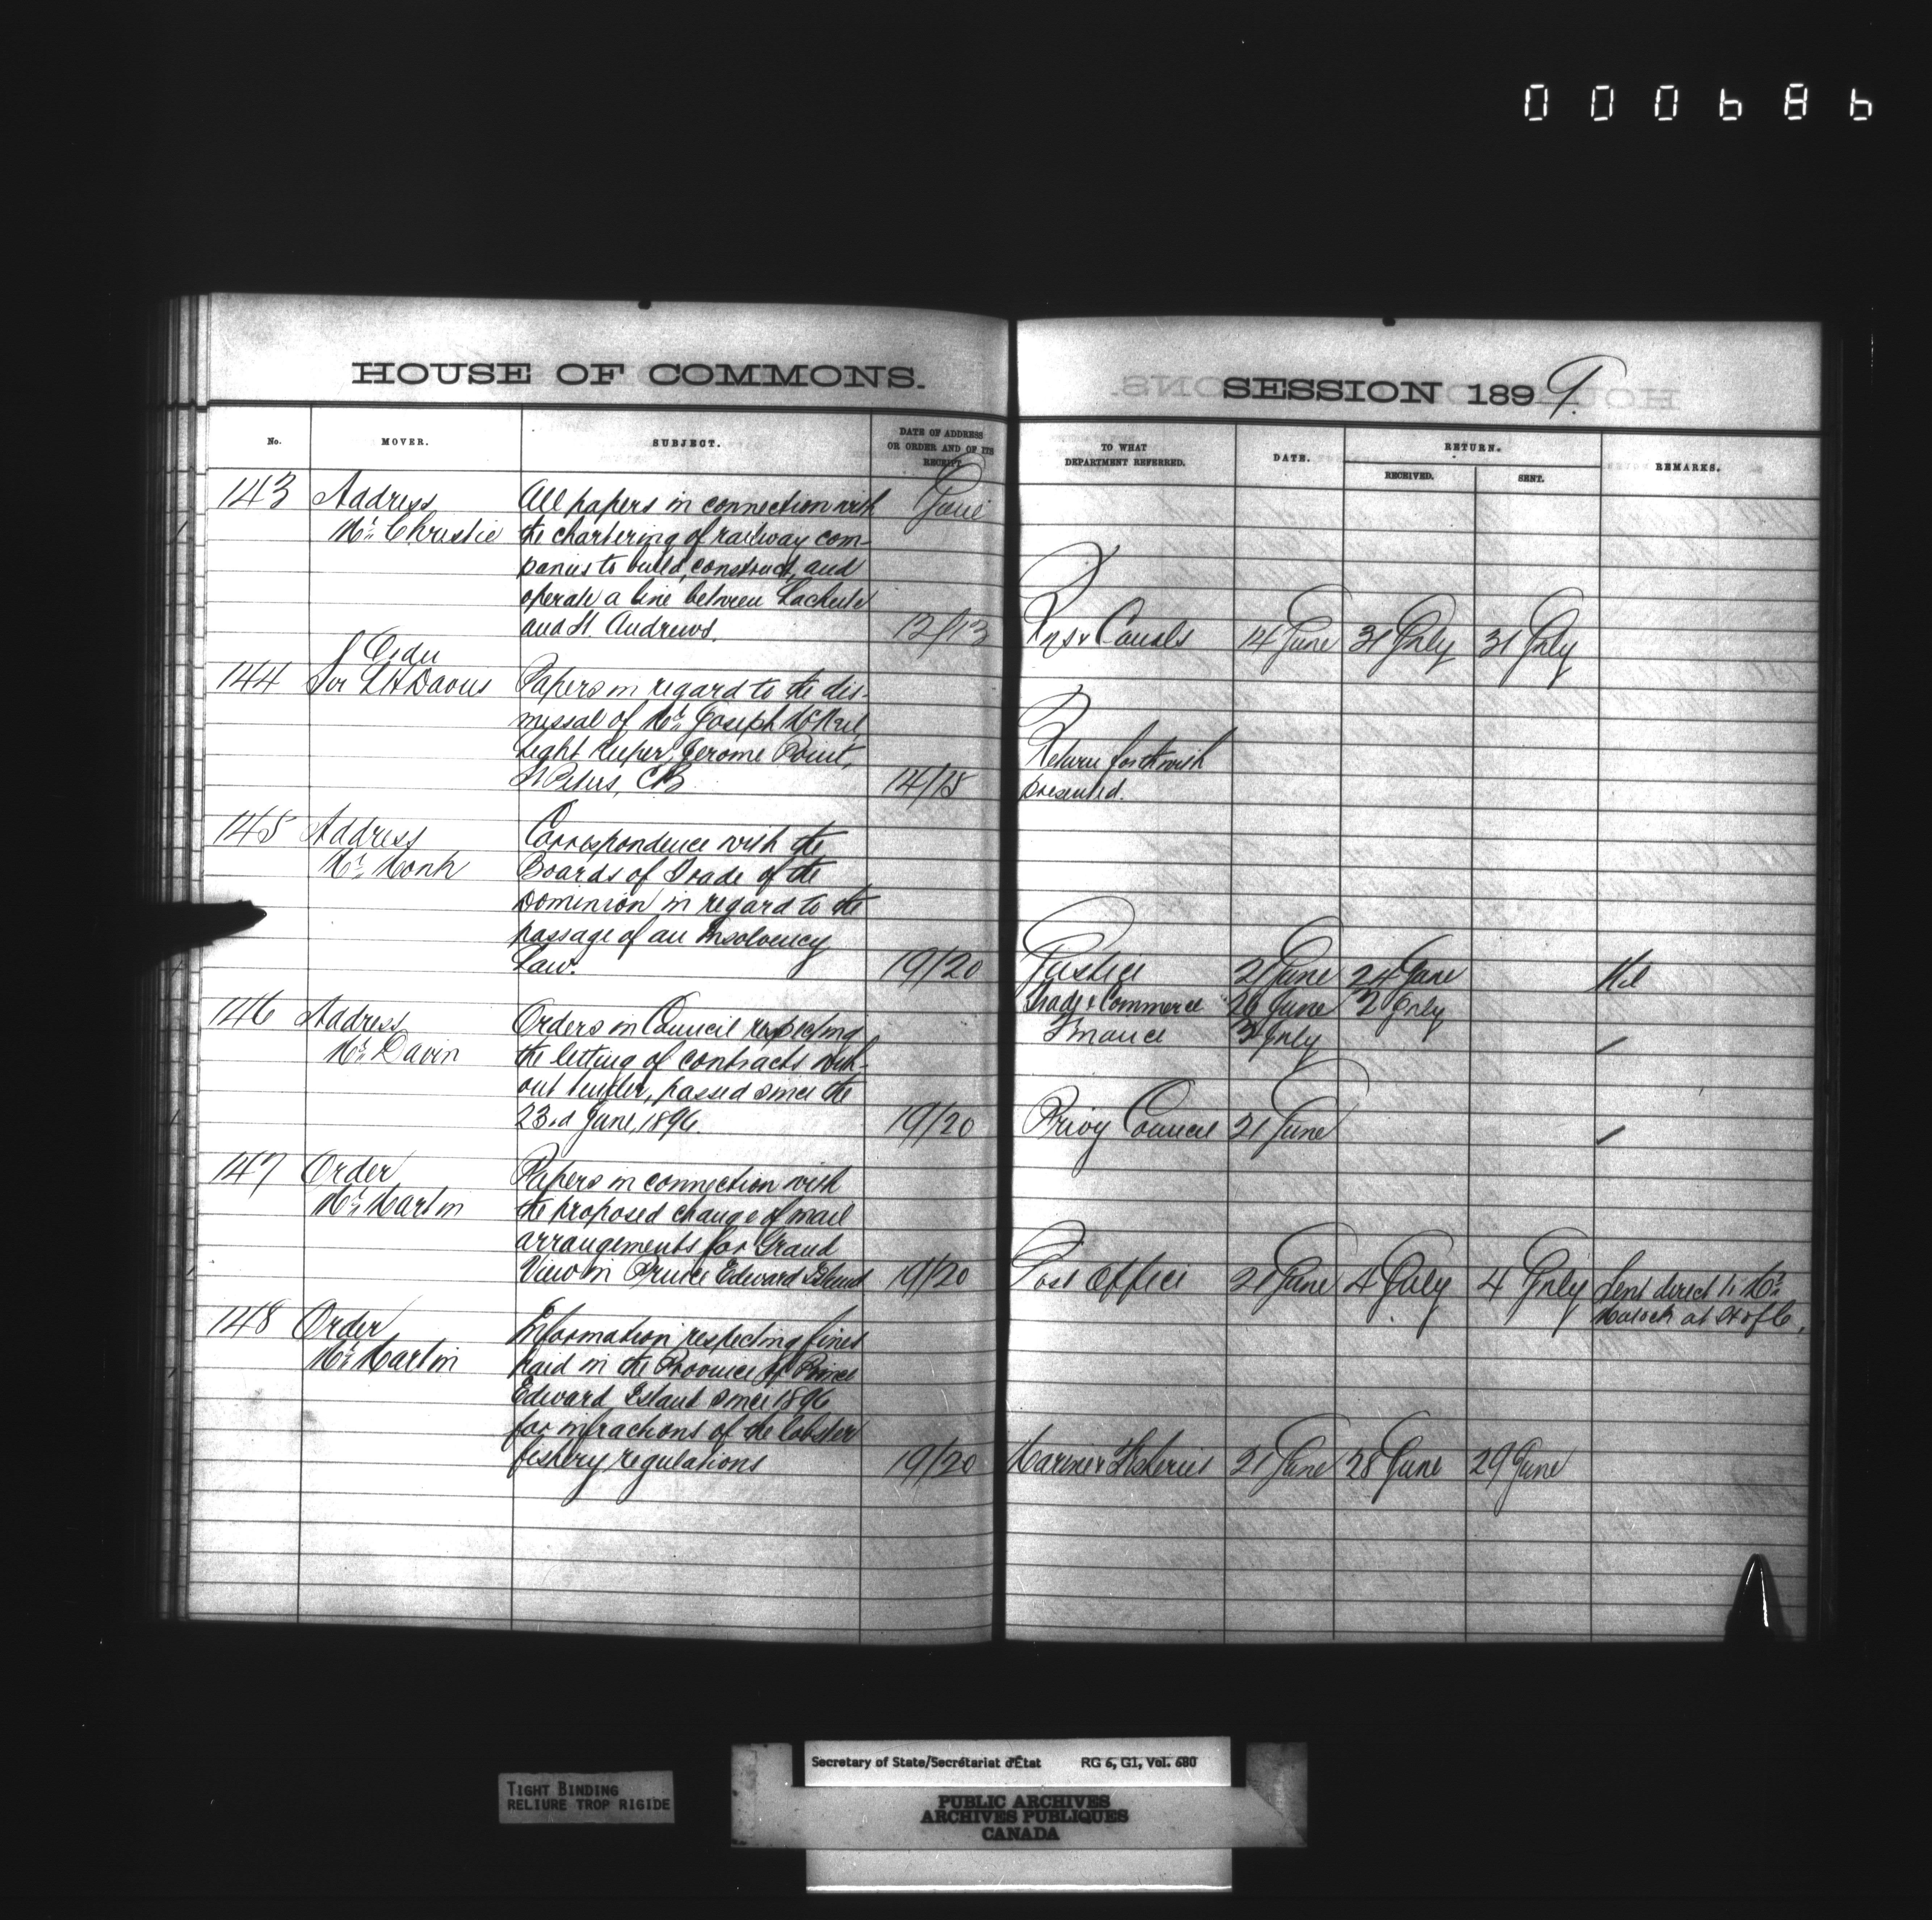 000686
HOUSE OF COMMONS.
No.
MOVER.
SUBJECT.
DATE OF ADDRESS
OR ORDER AND OF ITS
RECEIPT.
143 Address All papers in connection with June
Mr. Christie the chartering of railway com-
panies to build, construct, and
operate a line between Lachute
and St. Andrews. 12/13
Order
144 Sir L H Davies Papers in regard to the dis-
missal of Mr. Joseph McNeil,
Light Keeper, Jerome Point,
St Peters, CB 14/15
145 Address Correspondence with the
Mr. Monk Boards of Trade of the
Dominion in regard to the
passage of an Insolvency
Law. 19/20
146 Address Orders in Council respecting
Mr. Davin the letting of contracts with-
out tender, passed since the
23rd June, 1896. 19/20
147 Order Papers in connection with
Mr. Martin the proposed change of mail
arrangements for Grand
View in Prince Edward Island 19/20
148 Order Information respecting fines
Mr. Martin paid in the Province of Prince
Edward Island since 1896
for infractions of the lobster
fishery regulations 19/20
SESSION 1899.
TO WHAT
DEPARTMENT REFERRED.
DATE.
RETURN.
RECEIVED.
SENT.
REMARKS.
Rys & Canals 14 June 31 July 31 July
Return forthwith
presented.
Justice 21 June 24 June Nil
Trade & Commerce 26 June 2 July
Finance 3 July
Privy Council 21 June
Post Office 21 June 4 July 4 July Sent direct to Mr.
Mulock at H of C.
Marine & Fisheries 21 June 28 June 29 June
TIGHT BINDING
RELIURE TROP RIGIDE
Secretary of State/Secrétariat d'État RG 6, G1, Vol. 680
PUBLIC ARCHIVES
ARCHIVES PUBLIQUES
CANADA